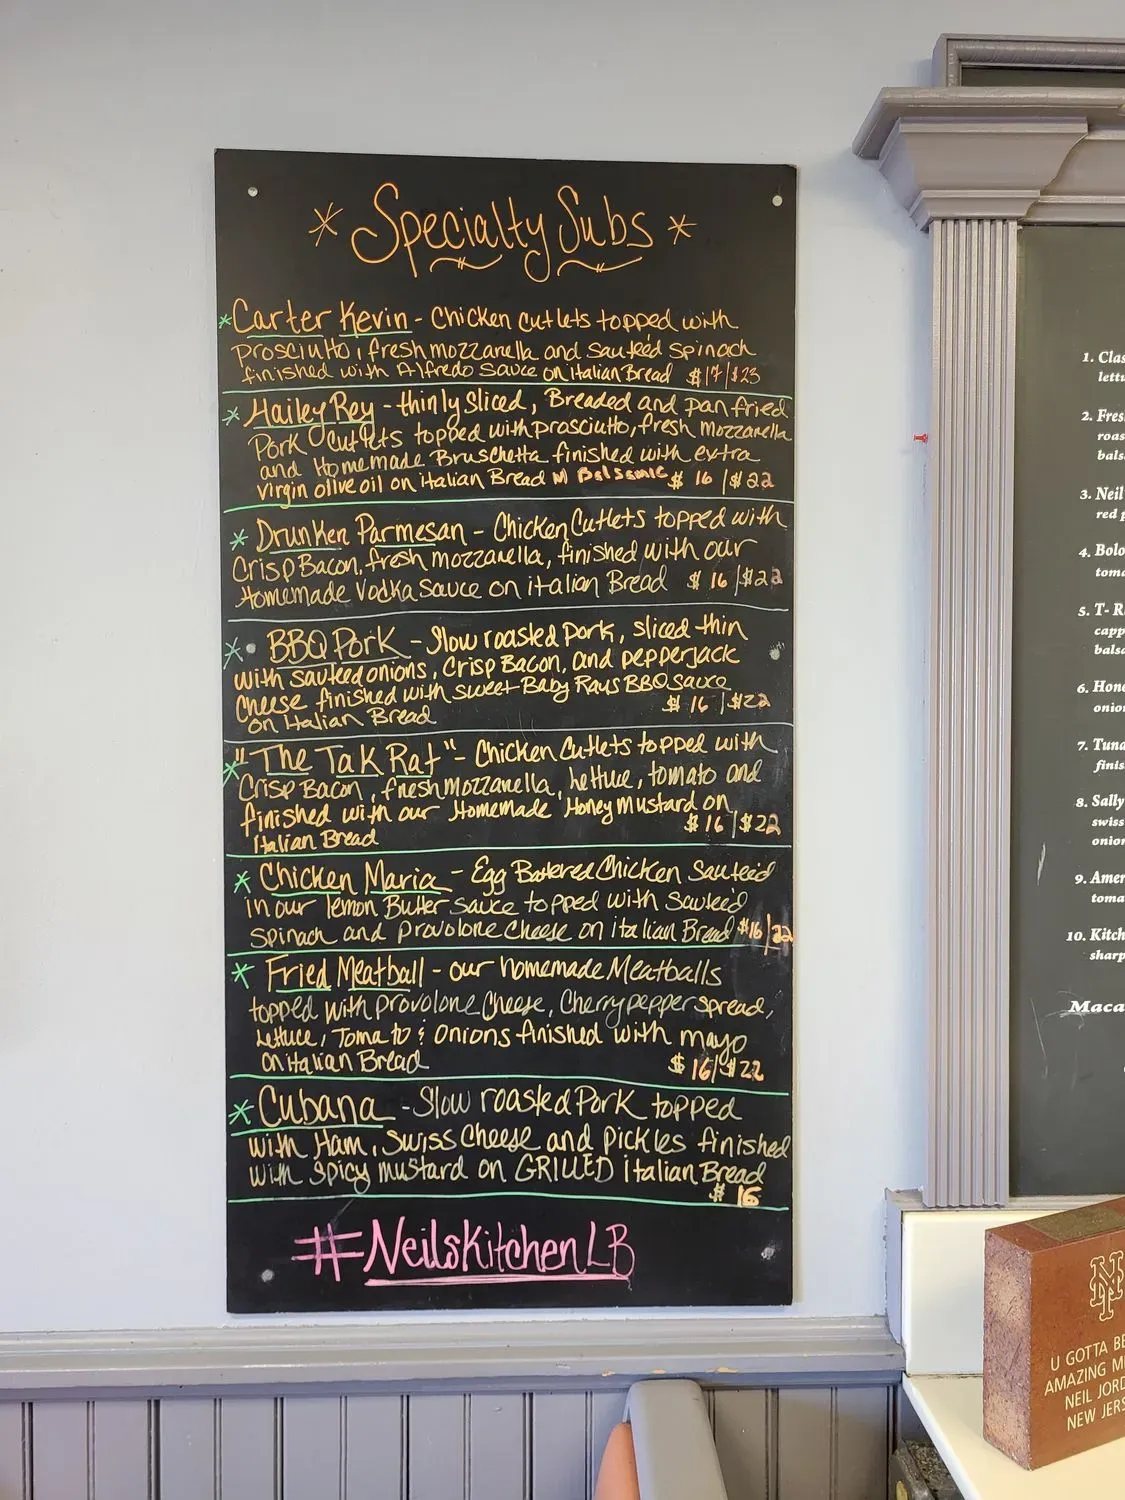 * Specialty Subs *
* Carter Kevin - Chicken Cutlets topped with
prosciutto, fresh mozzarella and sauteéd spinach
finished with Alfredo sauce on italian Bread $17/$23
* Hailey Rey - thinly sliced, Breaded and pan fried
Pork cutlets topped with prosciutto, fresh mozzarella
and Homemade Bruschetta finished with extra
virgin olive oil on italian Bread Balsamic $16/$22
* Drunken Parmesan - Chicken Cutlets topped with
Crisp Bacon, fresh mozzarella, finished with our
Homemade Vodka sauce on italian Bread $16/$22
* BBQ Pork - Slow roasted pork, sliced thin
with sauteed onions, Crisp Bacon, and pepperjack
Cheese finished with sweet Baby Rays BBQ sauce
on Italian Bread $16/$22
* "The Tak Rat" - Chicken Cutlets topped with
Crisp Bacon, fresh mozzarella, lettuce, tomato and
finished with our Homemade Honey Mustard on
italian Bread $16/$22
* Chicken Maria - Egg Battered Chicken Sauteéd
in our lemon Butter sauce topped with Sauteéd
Spinach and provolone Cheese on italian Bread $16/22
* Fried Meatball - our homemade Meatballs
topped with provolone Cheese, Cherry pepper spread,
Lettuce, Tomato & onions finished with mayo
on italian Bread $16/$22
* Cubana - Slow roasted Pork topped
with Ham, Swiss Cheese and pickles finished
with spicy mustard on GRILLED italian Bread
$16
#NeilsKitchenLB
1. Clas
lettu
2. Fres
roas
bals
3. Neil
red p
4. Bolo
toma
5. T- R
capp
balsa
6. Hone
onion
7. Tuna
finis
8. Sally
swiss
onion
9. Amer
toma
10. Kitch
sharp
Maca
NY
U GOTTA BE
AMAZING M
NEIL JORD
NEW JERS